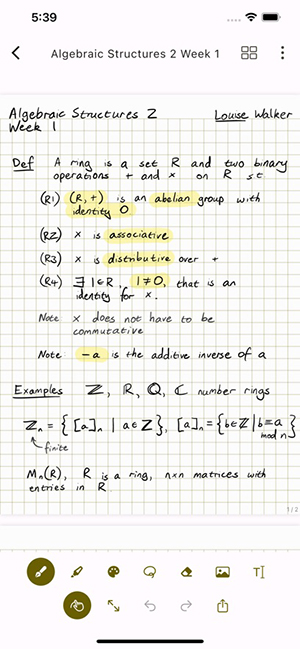 5:39
Algebraic Structures 2 Week 1
Algebraic Structures 2 Louise Walker
Week 1
Def A ring is a set R and two binary
operations + and × on R st
(R1) (R, +) is an abelian group with
identity 0
(R2) × is associative
(R3) × is distributive over +
(R4) ∃ 1∈R, 1≠0, that is an
identity for ×.
Note × does not have to be
commutative
Note -a is the additive inverse of a
Examples ℤ, ℝ, ℚ, ℂ number rings
ℤn = { [a]n | a∈ℤ }, [a]n = { b∈ℤ | b≡a
mod n }
finite
Mn(R), R is a ring, n×n matrices with
entries in R
1/2
T